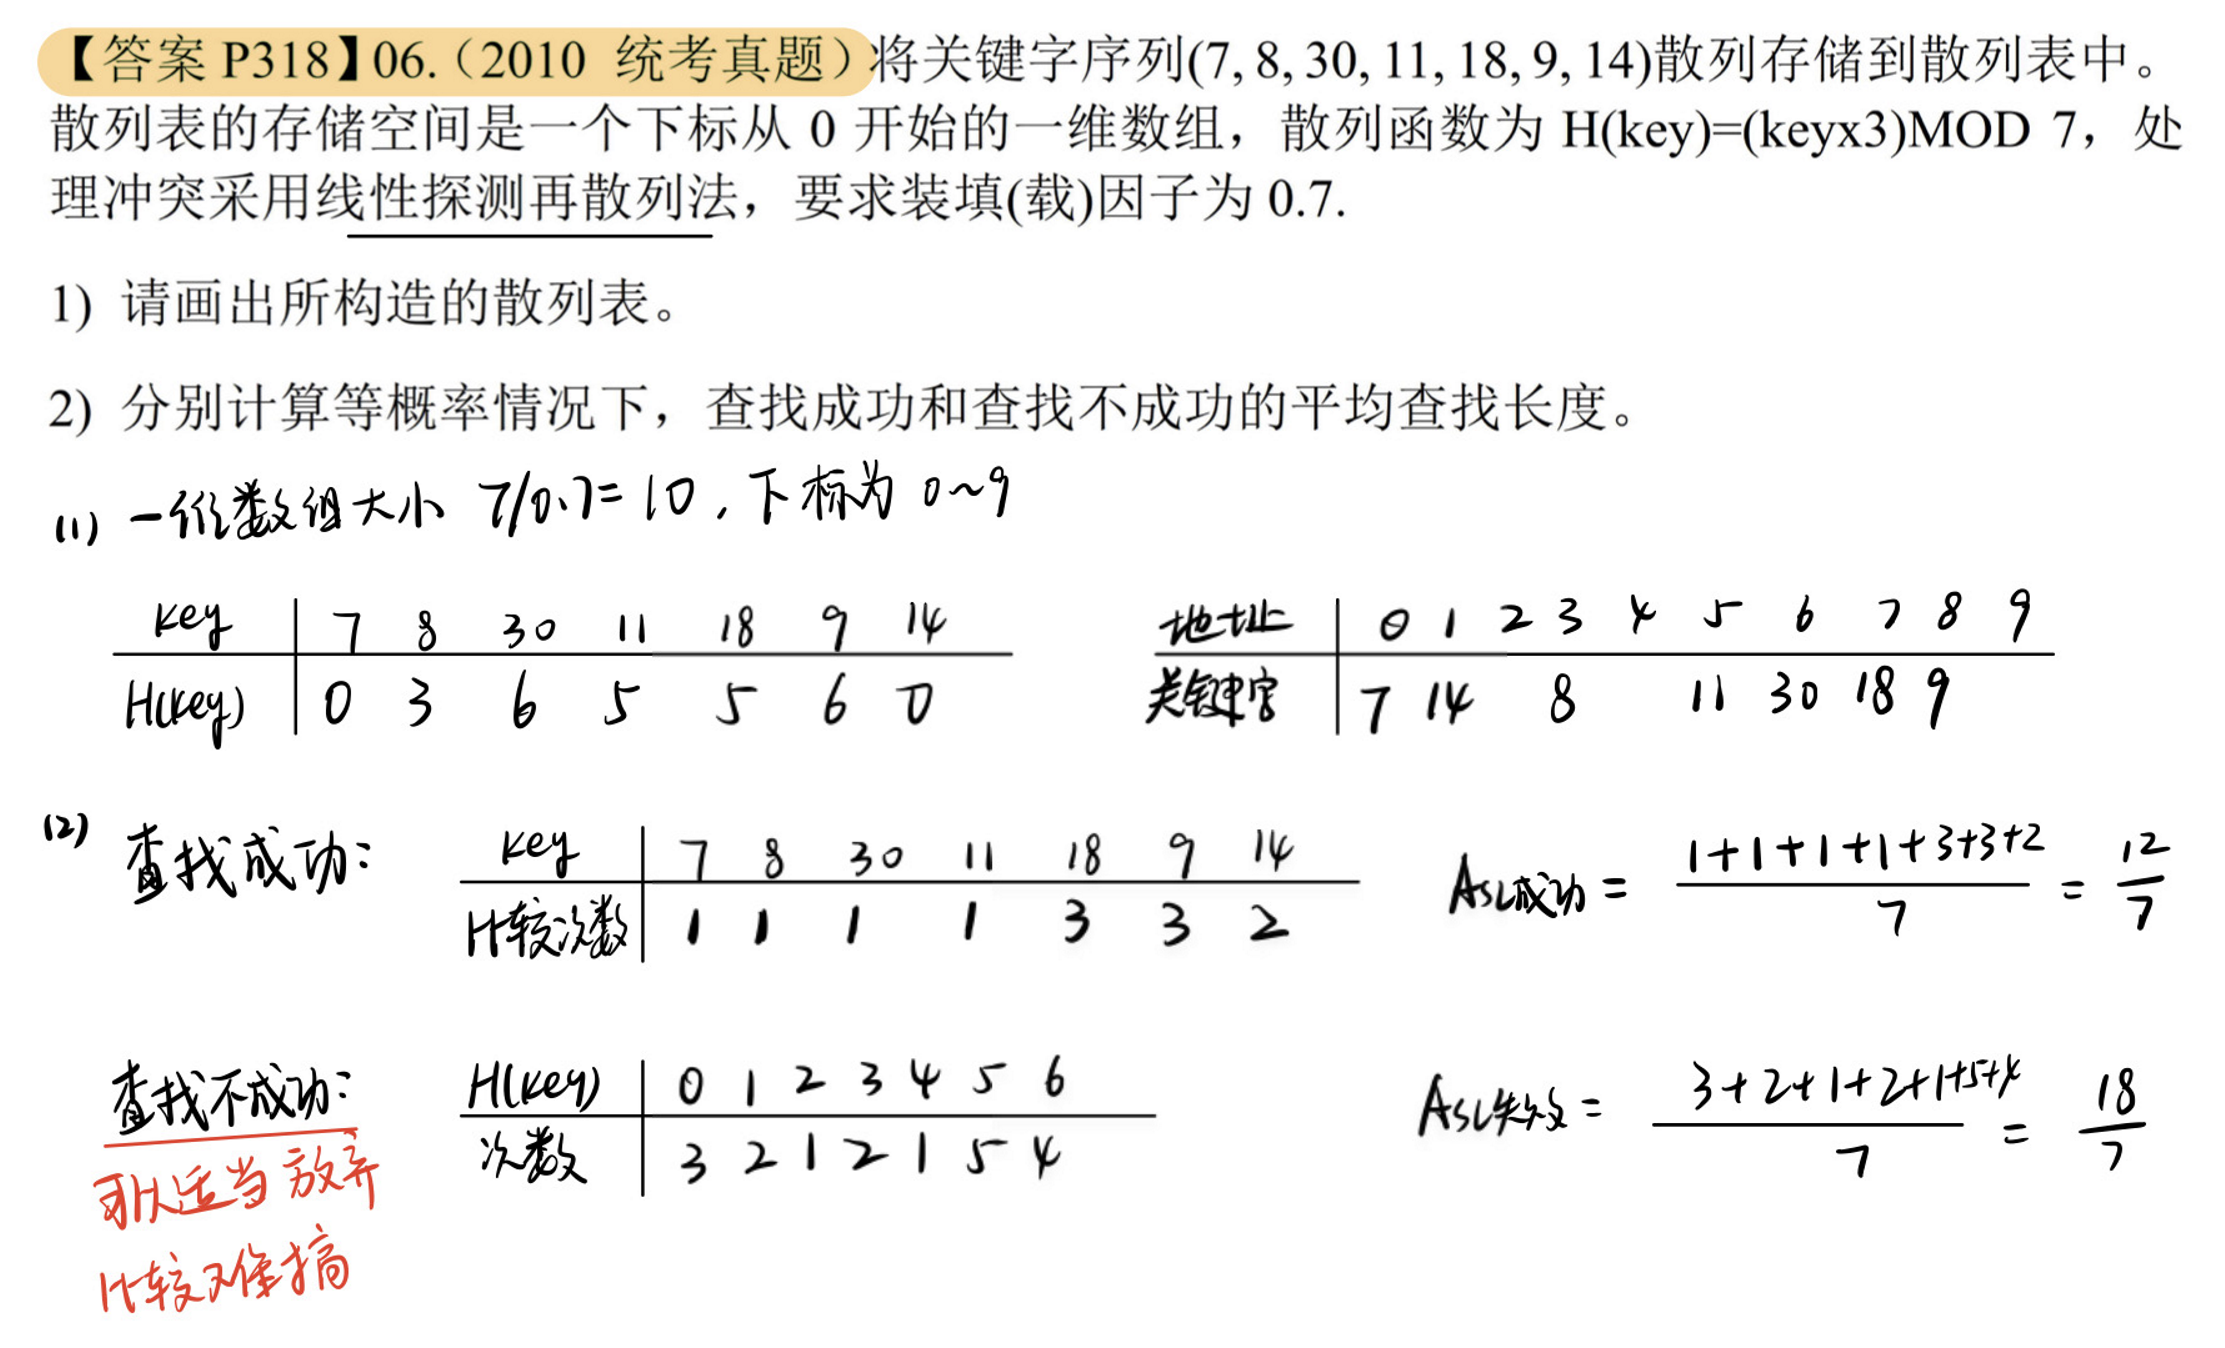 【答案 P318】06.（2010 统考真题）将关键字序列(7, 8, 30, 11, 18, 9, 14)散列存储到散列表中。
散列表的存储空间是一个下标从 0 开始的一维数组，散列函数为 H(key)=(keyx3)MOD 7，处
理冲突采用线性探测再散列法，要求装填(载)因子为 0.7.
1) 请画出所构造的散列表。
2) 分别计算等概率情况下，查找成功和查找不成功的平均查找长度。
(1) 一维数组大小 7/0.7=10，下标为 0~9
key 7 8 30 11 18 9 14
H(key) 0 3 6 5 5 6 0
地址 0 1 2 3 4 5 6 7 8 9
关键字 7 14 8 11 30 18 9
(2) 查找成功：
key 7 8 30 11 18 9 14
比较次数 1 1 1 1 3 3 2
ASL成功 = (1+1+1+1+3+3+2)/7 = 12/7
查找不成功：
H(key) 0 1 2 3 4 5 6
次数 3 2 1 2 1 5 4
ASL失败 = (3+2+1+2+1+5+4)/7 = 18/7
可以适当放弃
比较难搞